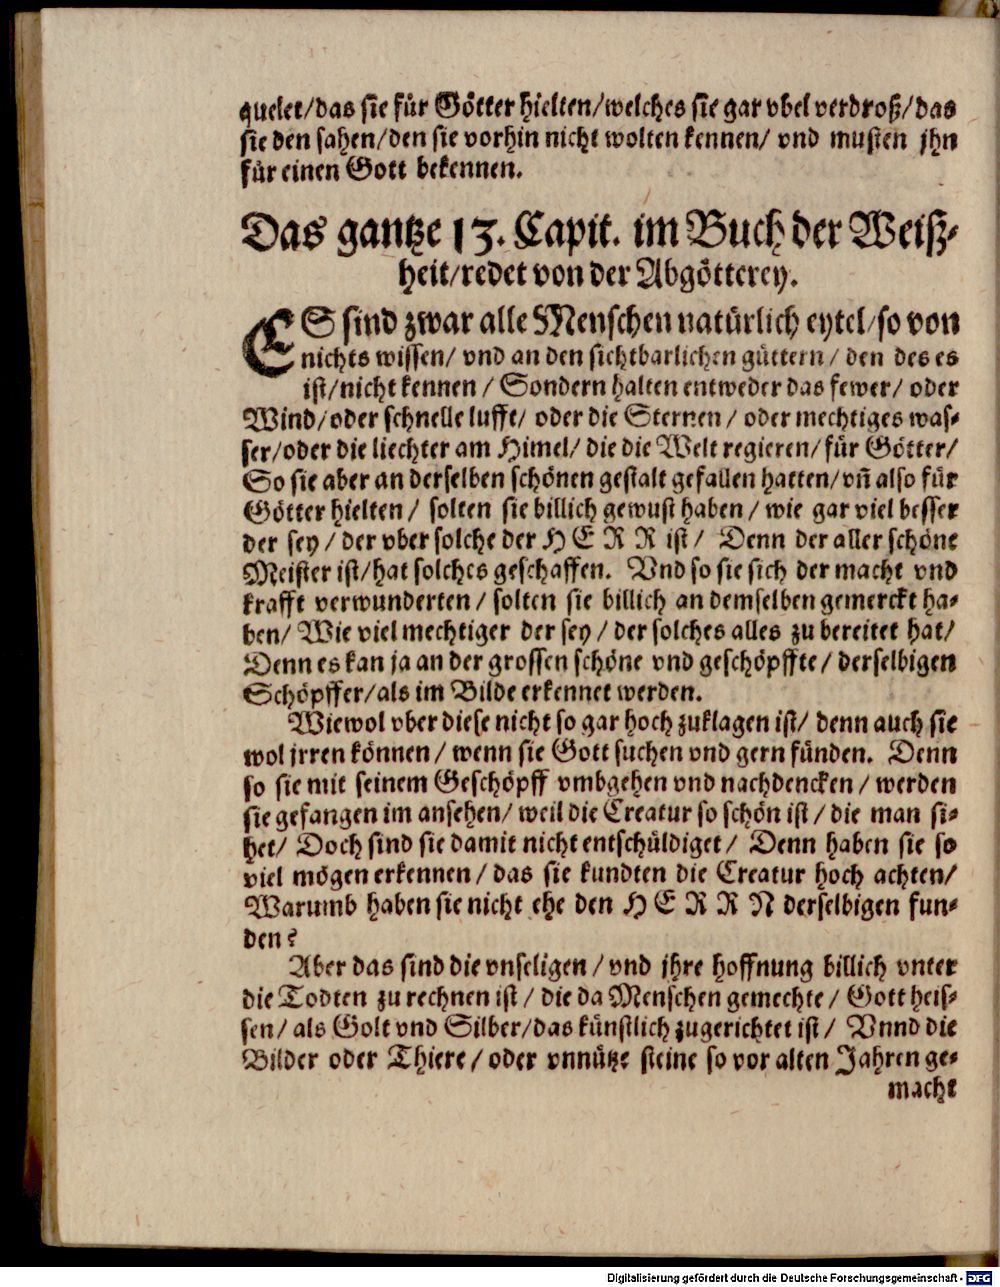 quelet/das sie für Götter hielten/welches sie gar vbel verdroß/das
sie den sahen/den sie vorhin nicht wolten kennen/ vnd musten jhn
für einen Gott bekennen.
Das gantze 13. Capit. im Buch der Weiß-
heit/redet von der Abgötterey.
ES sind zwar alle Menschen natürlich eytel/so von
nichts wissen/ vnd an den sichtbarlichen güttern/ den des es
ist/nicht kennen/ Sondern halten entweder das fewer/ oder
Wind/oder schnelle lufft/ oder die Sternen/ oder mechtiges was-
ser/oder die liechter am Himel/ die die Welt regieren/ für Götter/
So sie aber an derselben schönen gestalt gefallen hatten/vñ also für
Götter hielten/ solten sie billich gewust haben/ wie gar viel besser
der sey/ der vber solche der HERR ist/ Denn der aller schöne
Meister ist/hat solches geschaffen. Vnd so sie sich der macht vnd
krafft verwunderten/ solten sie billich an demselben gemerckt ha-
ben/ Wie viel mechtiger der sey/ der solches alles zu bereitet hat/
Denn es kan ja an der grossen schöne vnd geschöpffte/ derselbigen
Schöpffer/als im Bilde erkennet werden.
Wiewol vber diese nicht so gar hoch zuklagen ist/ denn auch sie
wol jrren können/ wenn sie Gott suchen vnd gern fünden. Denn
so sie mit seinem Geschöpff vmbgehen vnd nachdencken/ werden
sie gefangen im ansehen/ weil die Creatur so schön ist/ die man si-
het/ Doch sind sie damit nicht entschüldiget/ Denn haben sie so
viel mögen erkennen/ das sie kundten die Creatur hoch achten/
Warumb haben sie nicht ehe den HERRN derselbigen fun-
den?
Aber das sind die vnseligen/ vnd jhre hoffnung billich vnter
die Todten zu rechnen ist/ die da Menschen gemechte/ Gott heis-
sen/ als Golt vnd Silber/das künstlich zugerichtet ist/ Vnnd die
Bilder oder Thiere/ oder vnnütze steine so vor alten Jahren ge-
macht
Digitalisierung gefördert durch die Deutsche Forschungsgemeinschaft - DFG